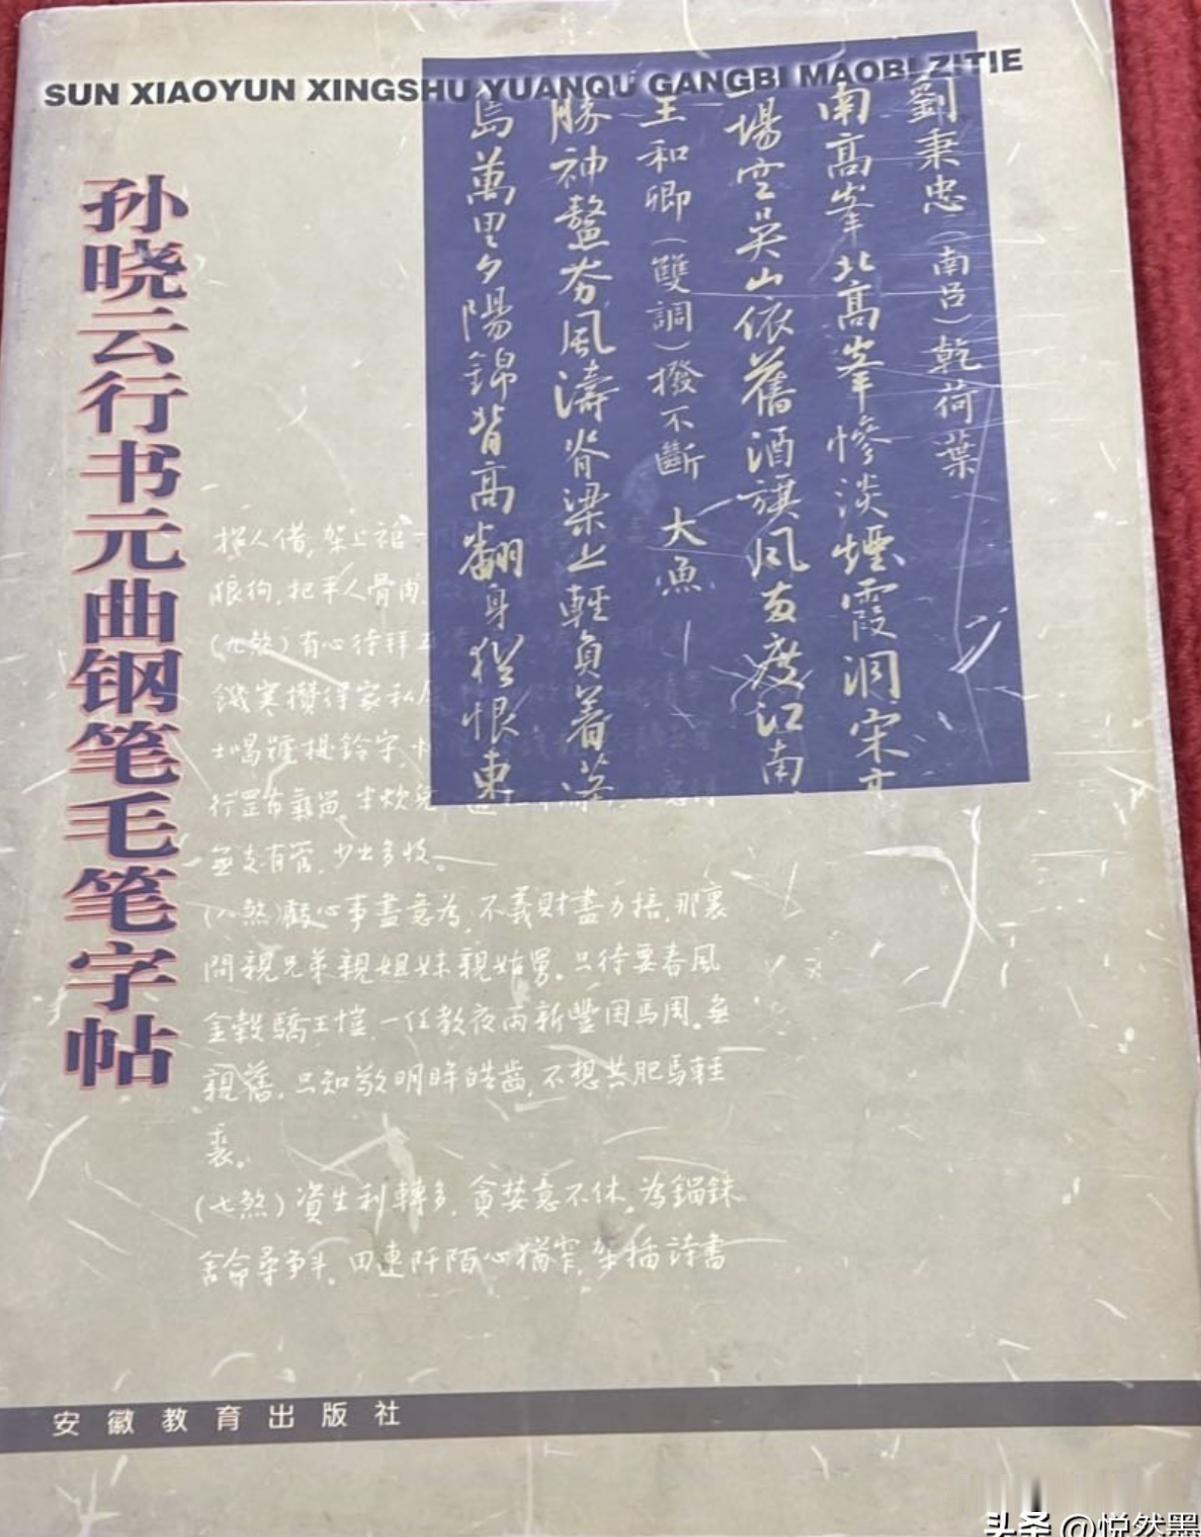 SUN XIAOYUN XINGSHU YUANQU GANGBI MAOBI ZITIE
孙晓云行书元曲钢笔毛笔字帖
劉秉忠（南呂）乾荷葉
南高峯北高峯慘淡煙霞洞宋高
一場空吳山依舊酒旗風兩度江南
王和卿（雙調）撥不斷 大魚
勝神鼇夯風濤脊梁上輕負着蓬
島萬里夕陽錦背高翻身猶恨東
狼狗，把平人骨肉
(九煞)有心待拜五
饑寒攢得家私厚
士喝
無支有管，少出多收。
(八煞)虧心事盡意為，不義財盡力掊，那裏
問親兄弟親姐妹親姑舅。只待要春風
金穀驕王愷，一任教夜雨新豐困馬周。無
親舊，只知敬明眸皓齒，不想共肥馬輕
裘。
(七煞)資生利轉多，貪婪意不休。為錙銖
舍命尋爭鬥。田連阡陌心猶窄，架插詩書
安徽教育出版社
头条 @悦然墨